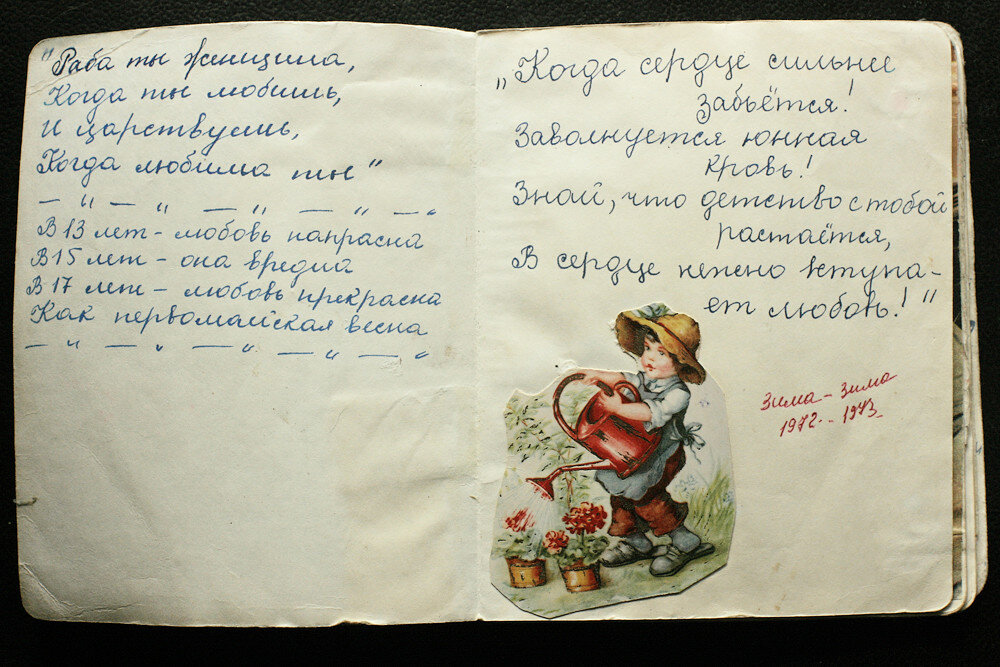 "Раба ты женщина,
Когда ты любишь,
И царствуешь,
Когда любима ты"
— " — " — " — " — "
В 13 лет - любовь напрасна
В 15 лет - она вредна
В 17 лет - любовь прекрасна
Как первомайская весна
— " — " — " — " — "
„Когда сердце сильнее
забьётся!
Заволнуется юнная
кровь!
Знай, что детство с тобой
растаётся,
В сердце нежно вступа-
ет любовь!"
Зима - Зима
1972 - 1973